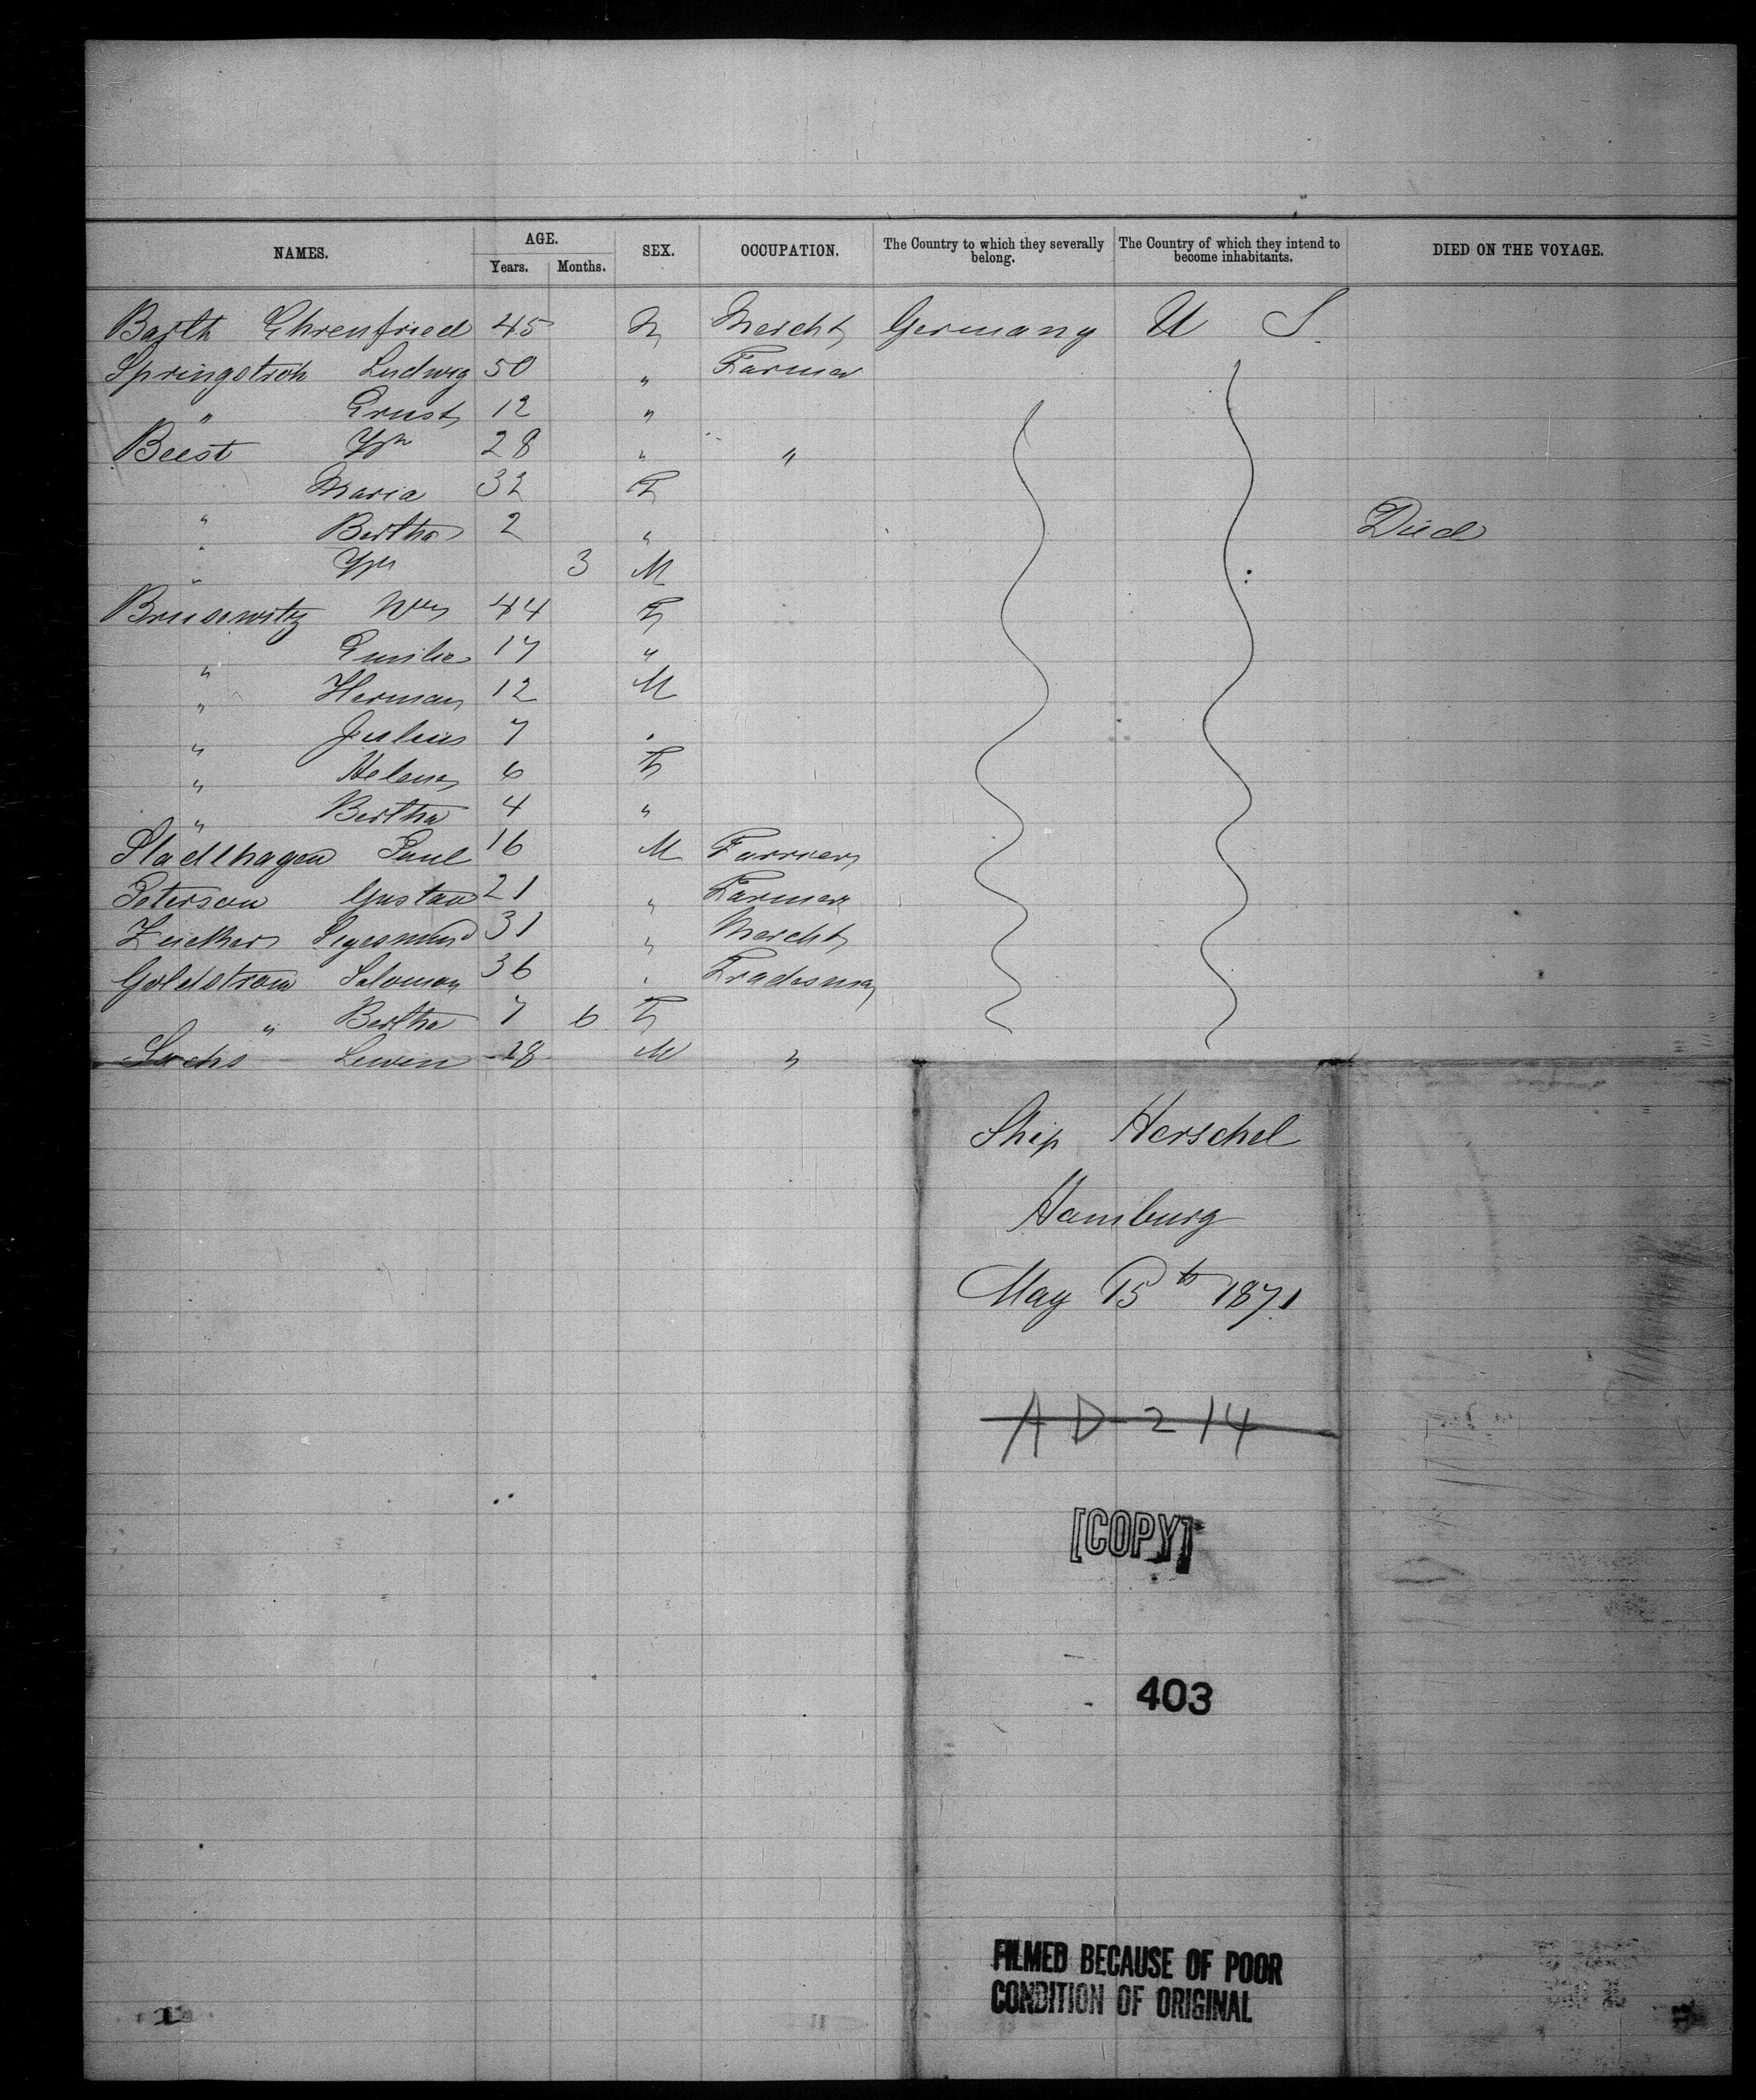 NAMES. AGE. SEX. OCCUPATION. The Country to which they severally belong. The Country of which they intend to become inhabitants. DIED ON THE VOYAGE.
Years. Months.
Barth Ehrenfried 45 M Mercht Germany U S
Springstroh Ludwig 50 " Farmer
" Ernst 12 "
Beest 28 " "
Maria 32 F
" Bertha 2 " Died
" 3 M
Brusewitz 44 F
" Emilie 17 "
" Herman 12 M
" Julius 7 "
" Helena 6 F
" Bertha 4 "
Stadthagen Paul 16 M Farrier
Peterson Gustav 21 " Farmer
Zucker Sigesmund 31 " Mercht
Goldstrom Salomon 36 " Tradesman
" Bertha 7 6 F
Sachs Lewin 28 M "
Ship Herschel
Hamburg
May 15th 1871.
A D 2 14
[COPY]
403
FILMED BECAUSE OF POOR
CONDITION OF ORIGINAL